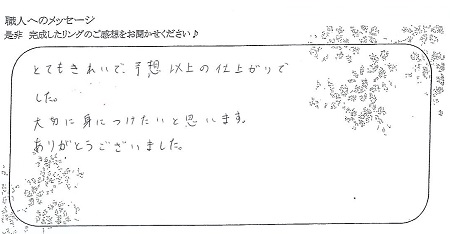 職人へのメッセージ
是非 完成したリングのご感想をお聞かせください♪
とてもきれいで、予想以上の仕上がりで
した。
大切に身につけたいと思います。
ありがとうございました。